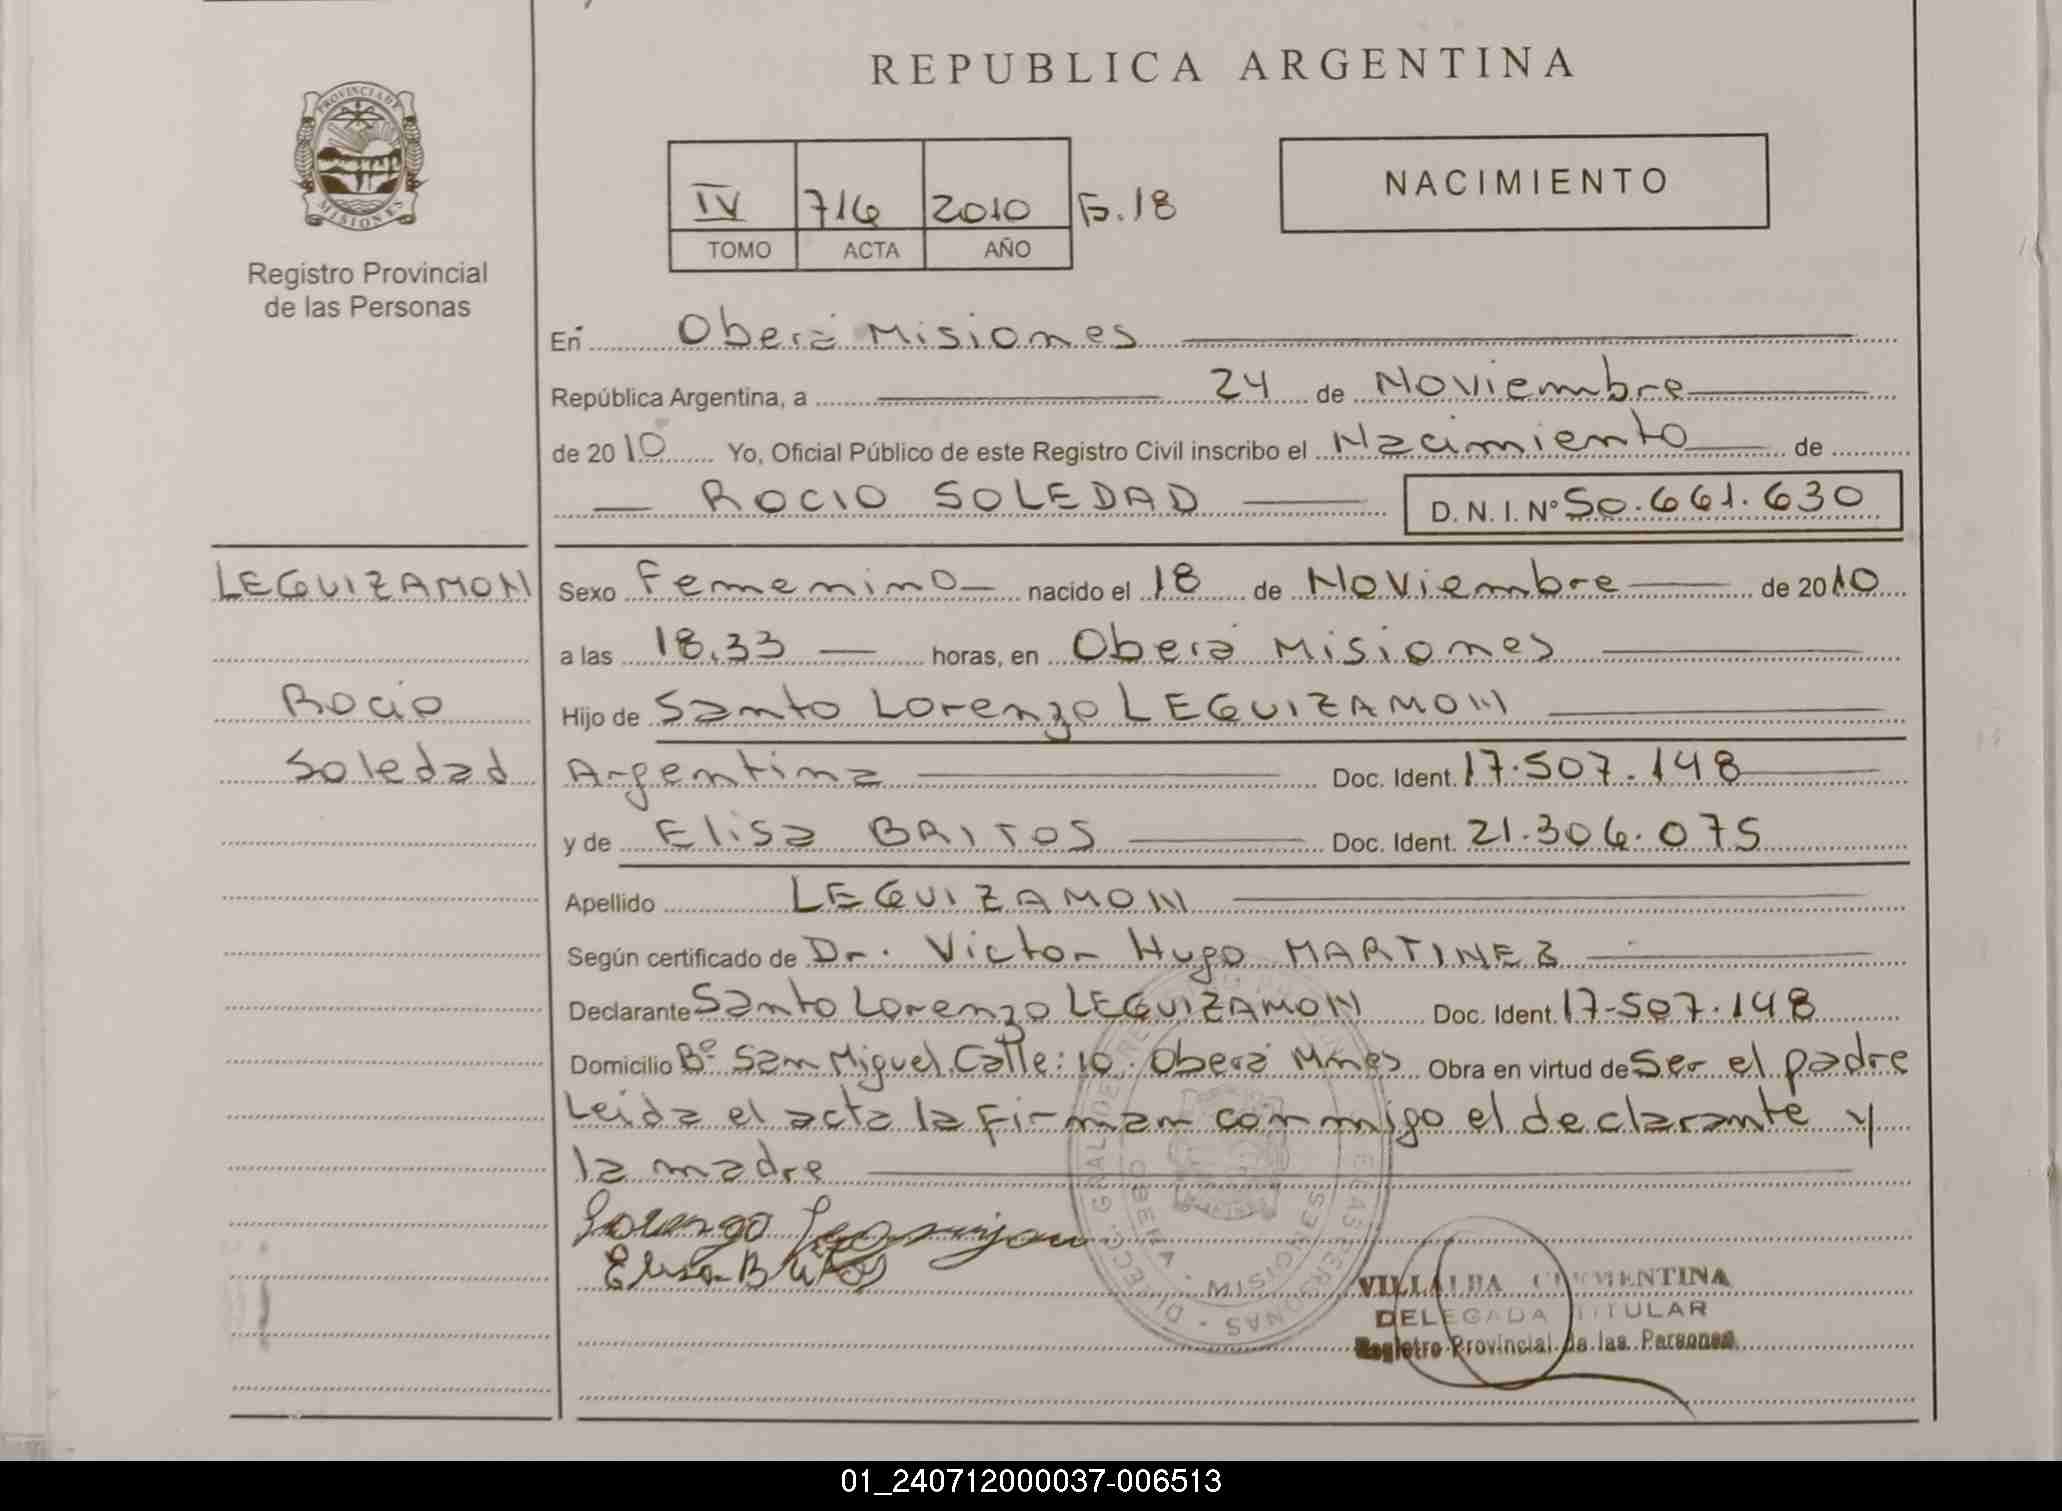 PROVINCIA DE
MISIONES
Registro Provincial
de las Personas
LEGUIZAMON
Rocio
Soledad
REPUBLICA ARGENTINA
IV 716 2010 F.18
TOMO ACTA AÑO
NACIMIENTO
En Oberá Misiones
República Argentina, a 24 de Noviembre
de 2010 Yo, Oficial Público de este Registro Civil inscribo el Nacimiento de
ROCIO SOLEDAD D.N.I. Nº 50.661.630
Sexo Femenino nacido el 18 de Noviembre de 2010
a las 18,33 horas, en Oberá Misiones
Hijo de Santo Lorenzo LEGUIZAMON
Argentina Doc. Ident. 17.507.148
y de Elisa BRITOS Doc. Ident. 21.306.075
Apellido LEGUIZAMON
Según certificado de Dr. Victor Hugo MARTINEZ
Declarante Santo Lorenzo LEGUIZAMON Doc. Ident. 17-507.148
Domicilio Bº San Miguel Calle: 10. Oberá Mnes Obra en virtud de ser el padre
Leida el acta la Firman conmigo el declarante y
la madre
Elisa Britos
VILLALBA CLEMENTINA
DELEGADA TITULAR
Registro Provincial de las Personas
01_240712000037-006513